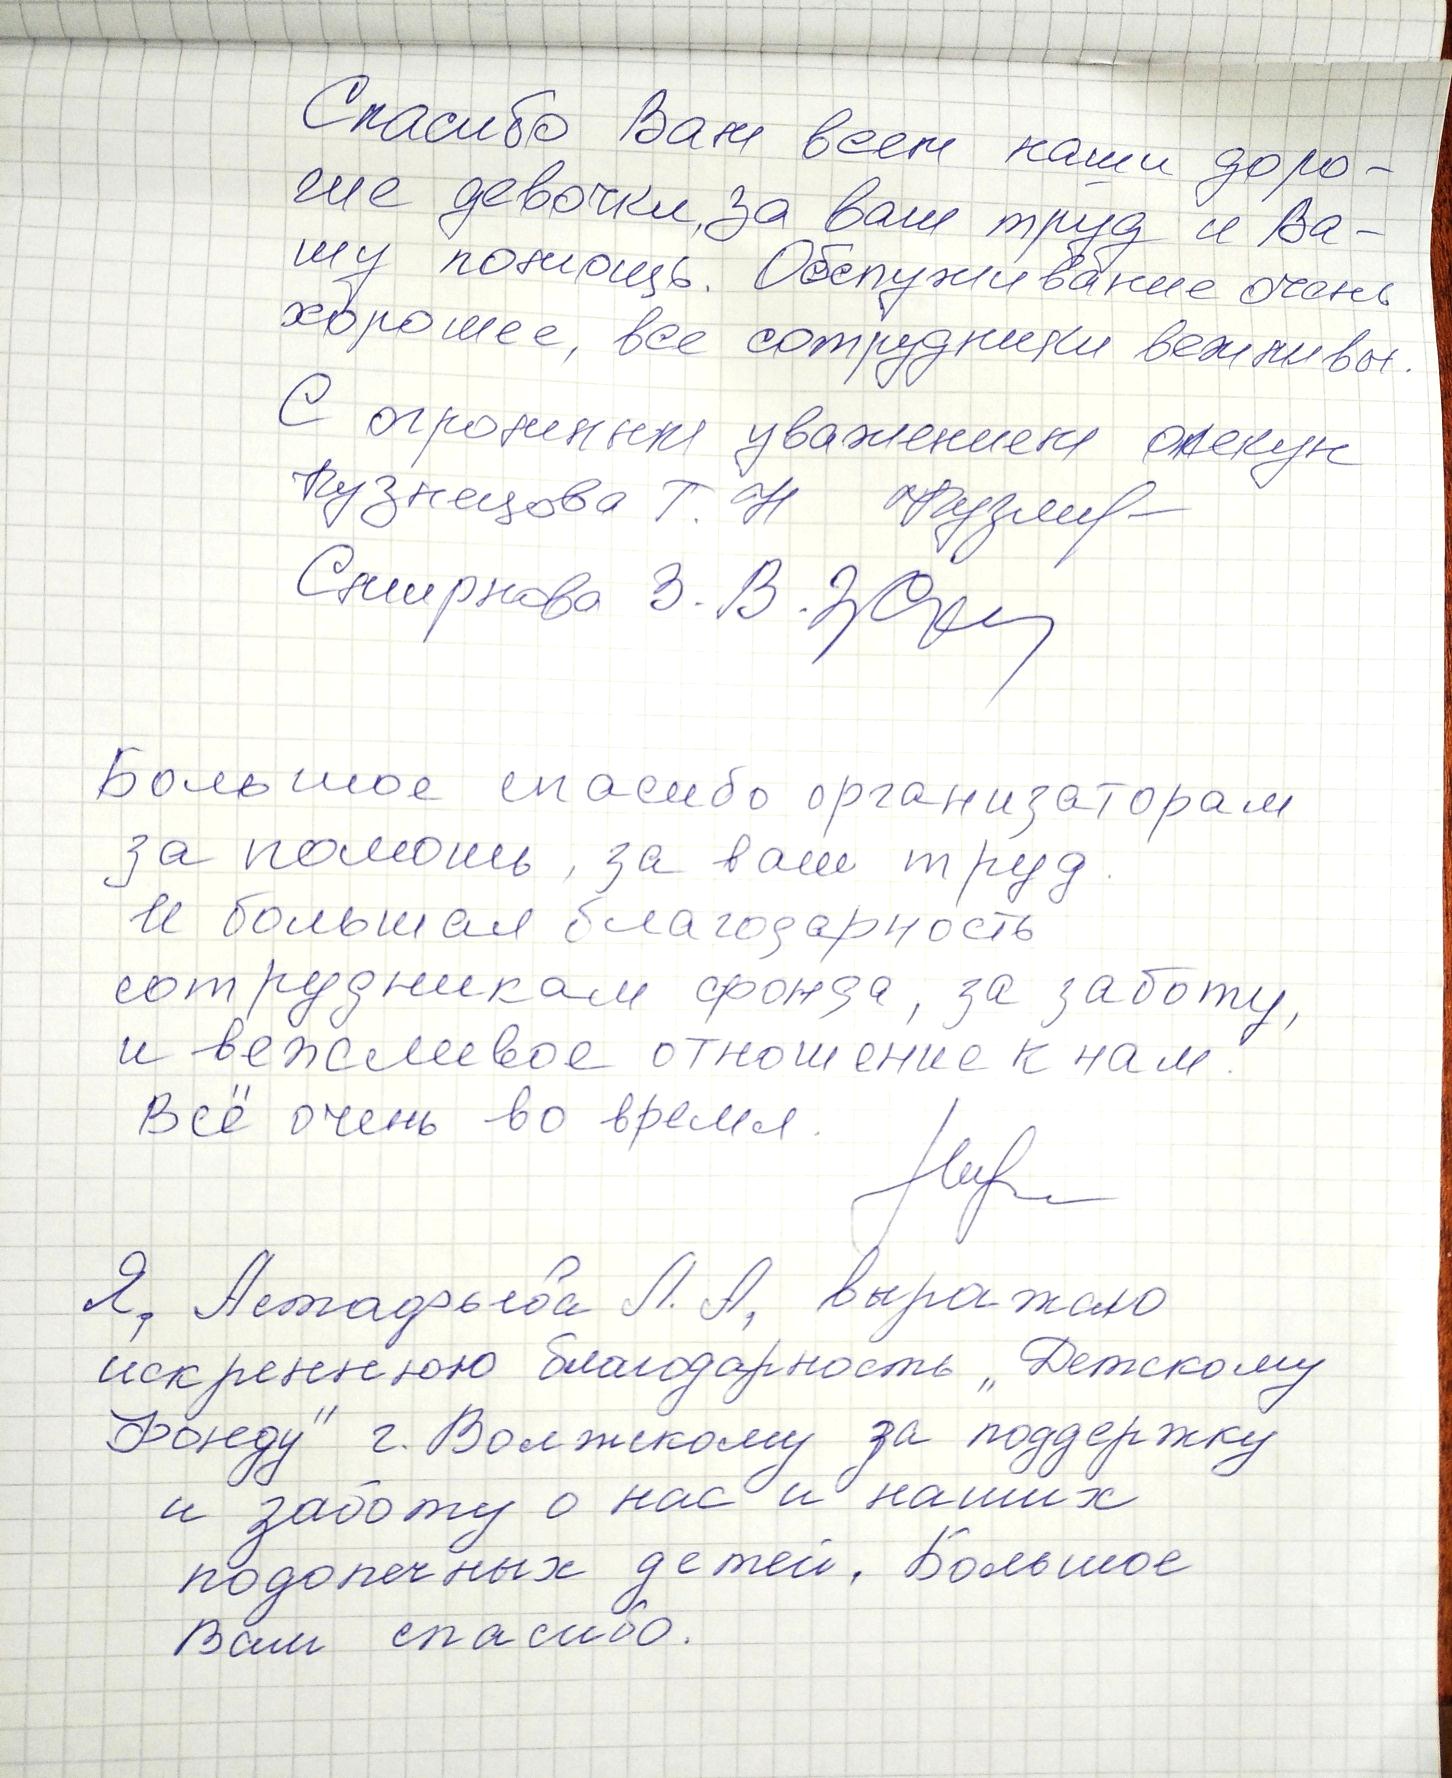 Спасибо Вам всем наши доро-
гие девочки, за ваш труд и Ва-
шу помощь. Обслуживание очень
хорошее, все сотрудники вежливы.
С огромным уважением опекун
Кузнецова Т. Н
Смирнова З. В.
Большое спасибо организаторам
за помошь, за ваш труд.
И большая благодарность
сотрудникам фонда, за заботу,
и вежливое отношение к нам.
Всё очень во время.
Я, Астафьева Л. А, выражаю
искреннюю благодарность „Детскому
Фонду" г. Волжскому за поддержку
и заботу о нас и наших
подопечных детей. Большое
Вам спасибо.